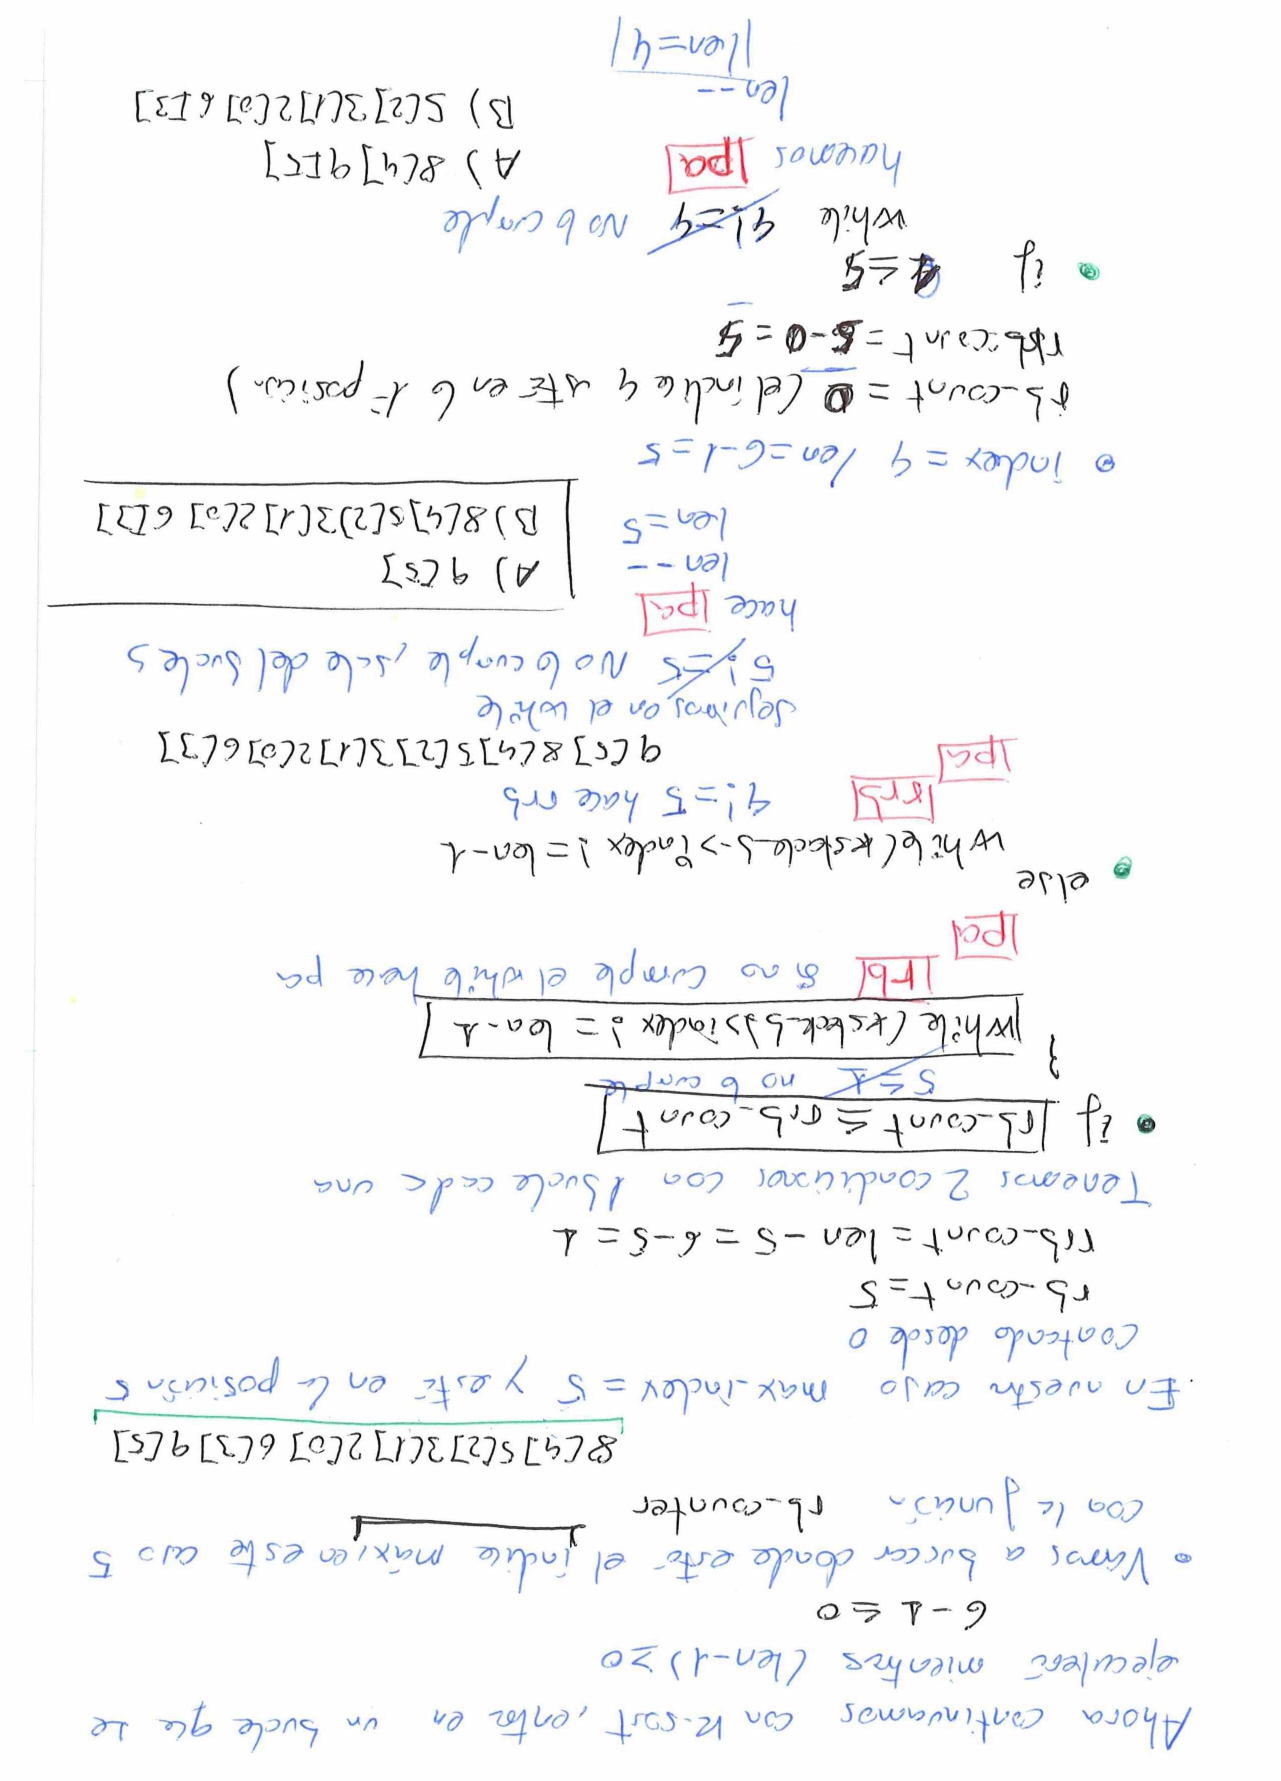 Ahora continuamos con k-sort, entra en un bucle que se
ejecutará mientras (len-1) ≥0
6 - 1 ≤ 0
• Vamos a buscar donde está el índice máx, en este caso 5
con la función rb_counter
8[4] 5[2] 3[1] 2[0] 6[3] 9[5]
. En nuestro caso max_index = 5 y está en la posición 5
contando desde 0
rb_count = 5
rrb_count = len - 5 = 6-5 = 1
Tenemos 2 condiciones con 1 bucle cada una
• if rb_count ≤ rrb_count
5 ≤ 1 no lo cumple
}
while (*stack_b)->index != len-1
rb si no cumple el while hace pa
pa
• else
while(*stack_b->index != len-1
rrb 4!=5 hace rrb
pa
9[5] 8[4] 5[2] 3[1] 2[0] 6[3]
Seguimos en el while
5!=5 No lo cumple, sale del bucle y
hace pa
len--
len=5
A) 9[5]
B) 8[4] 5[2] 3[1] 2[0] 6[3]
• index = 4 len=6-1=5
rb_count = 0 (el índice 4 está en la 1ª posición)
rrb_count = 5-0 = 5
• if ≤5
while 4!=4 No lo cumple
hacemos pa
len--
len=4
A) 8[4] 9[5]
B) 5[2] 3[1] 2[0] 6[3]